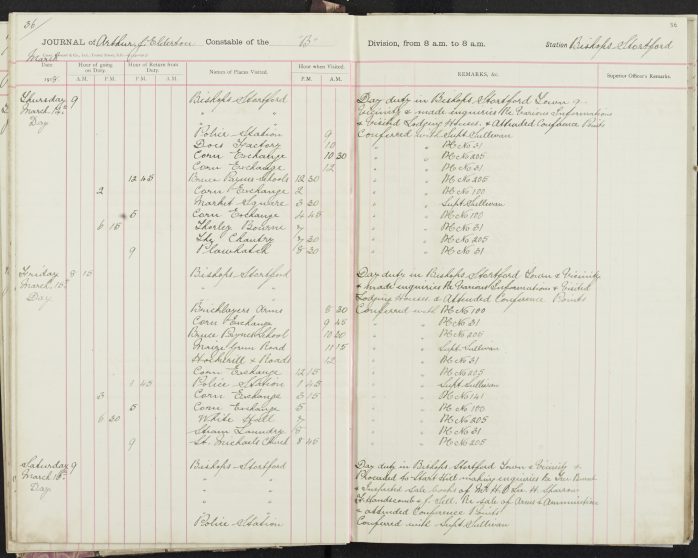 36/
JOURNAL of Arthur J. Elderton Constable of the "B" Division, from 8 a.m. to 8 a.m. Station Bishops Stortford
36
March
Date
191
Hour of going on Duty.
A.M. P.M.
Hour of Return from Duty.
P.M. A.M.
Names of Places Visited.
Hour when Visited.
P.M. A.M.
REMARKS, &c.
Superior Officer's Remarks.
Thursday 9 Bishops Stortford Day duty in Bishops Stortford Town &
March Vicinity & made enquiries Re Various Informations
Day & Visited Lodging Houses & Attended Conference Points
Police Station 9 Conferred with Supt Sullivan
Does Factory 10 " " PC No 31
Corn Exchange 10 30 " " PC No 205
Corn Exchange 12 " " PC No 31
12 45 Bruce Paynes Schools 12 30 " " PC No 205
2 Corn Exchange 2 " " PC No 100
Market Square 3 30 " " Supt Sullivan
5 Corn Exchange 4 45 " " PC No 100
6 15 Thorley Bourne 7 " " PC No 31
The Chantry 7 30 " " PC No 205
9 Plawhatch 8 30 " " PC No 31
Friday 8 15 Bishops Stortford Day duty in Bishops Stortford Town & Vicinity
March 15th " " & made enquiries Re Various Information & Visited
Day Lodging Houses & Attended Conference Points
Bricklayers Arms 8 30 Conferred with PC No 100
Corn Exchange 9 45 " " PC No 31
Bruce Paynes School 10 30 " " PC No 205
Maize Green Road 11 15 " " Supt Sullivan
Hockerill + Roads 12 " " PC No 31
Corn Exchange 12 15 " " PC No 205
1 45 Police Station 1 45 " " Supt Sullivan
3 Corn Exchange 3 15 " " PC No 141
5 Corn Exchange 5 " " PC No 100
6 30 White Hall 7 " " PC No 205
Steam Laundry 8 " " PC No 31
9 St. Michaels Church 8 45 " " PC No 205
Saturday 9 Bishops Stortford Day duty in Bishops Stortford Town & Vicinity &
March 16th " " Proceeded to Start Hill making enquiries Re
Day " " & Inspected Sale books of Mr H. Sparrow
" " Handscomb & J. Gill. Re sale of Arms & Ammunition
" " & attended Conference Points
Police Station Conferred with Supt Sullivan